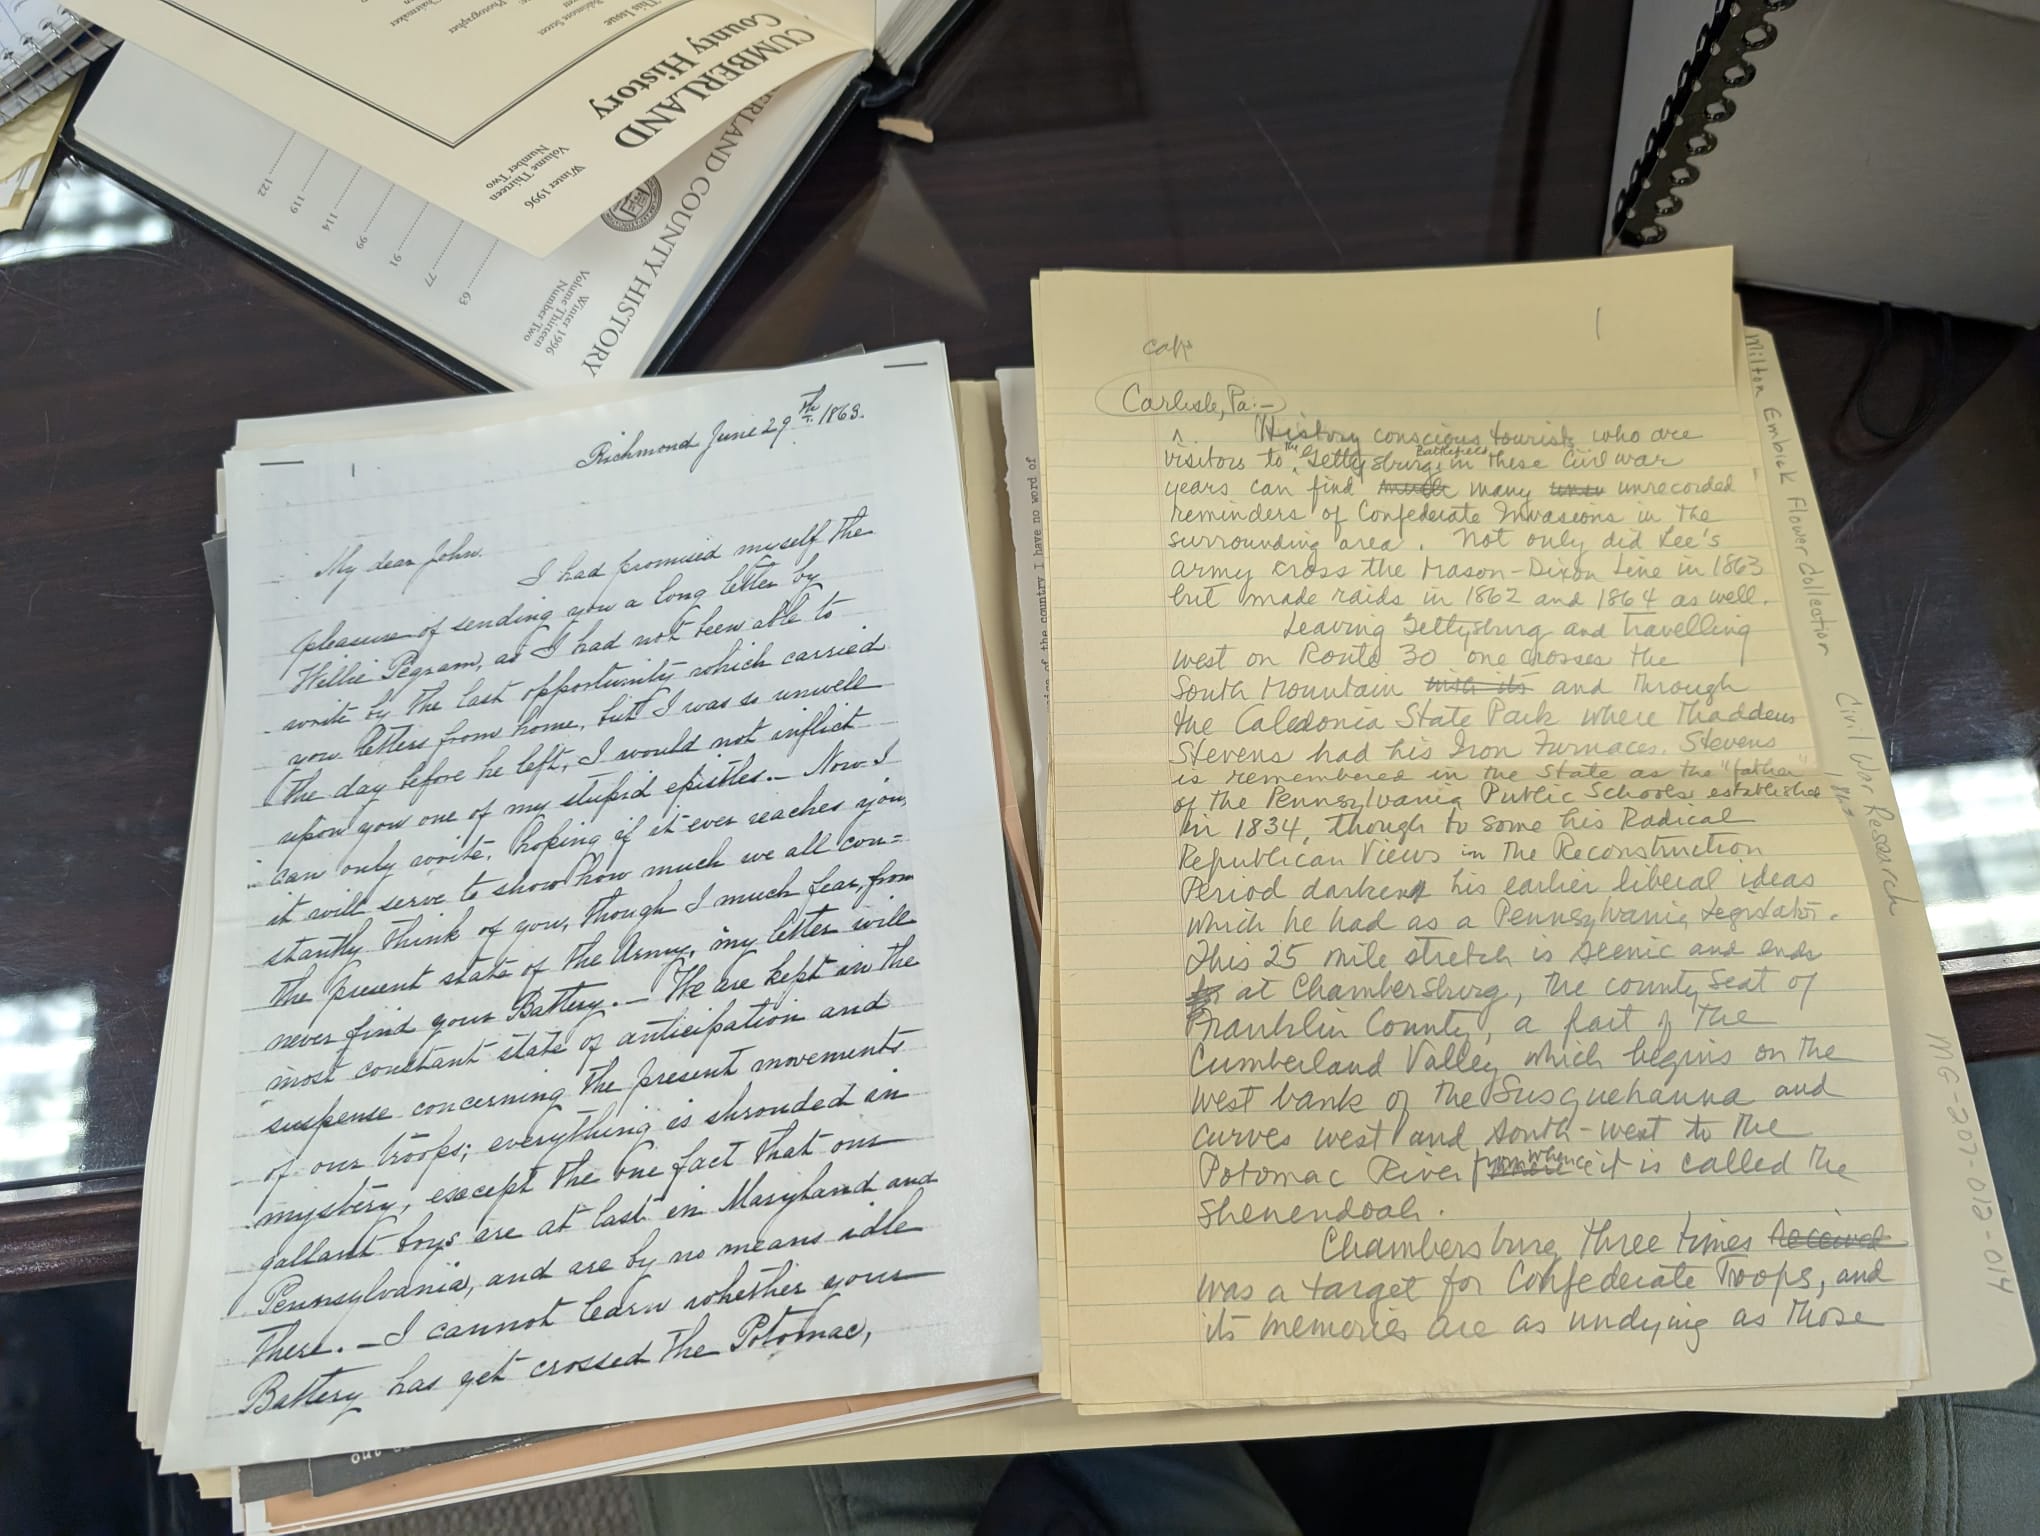 CUMBERLAND
County History
Winter 1996
Volume Thirteen
Number Two
This Issue
Baltimore Street
Photographer
Chairmaker
CUMBERLAND COUNTY HISTORY
Winter 1996
Volume Thirteen
Number Two
63
77
91
99
114
119
122
1
Richmond June 29th 1863.
My dear John.
I had promised myself the
pleasure of sending you a long letter by
Willie Pegram, as I had not been able to
write by the last opportunity which carried
you letters from home, but I was so unwell
the day before he left, I would not inflict
upon you one of my stupid epistles. — Now I
can only write, hoping if it ever reaches you,
it will serve to show how much we all con=
stantly think of you, though I much fear, from
the present state of the Army, my letter will
never find your Battery. — We are kept in the
most constant state of anticipation and
suspense concerning the present movements
of our troops; everything is shrouded in
mystery, except the one fact that our
gallant boys are at last in Maryland and
Pennsylvania, and are by no means idle
there. — I cannot learn whether your
Battery has yet crossed the Potomac,
of the country I have no word of
1
caps
Carlisle, Pa:—
History conscious tourists who are
visitors to the Gettysburg Battlefield in these Civil War
years can find much many unrecorded
reminders of Confederate Invasions in the
surrounding area. Not only did Lee's
army cross the Mason-Dixon Line in 1863
but made raids in 1862 and 1864 as well.
Leaving Gettysburg and travelling
west on Route 30 one crosses the
South Mountain with its and through
the Caledonia State Park where Thaddeus
Stevens had his Iron Furnaces. Stevens
is remembered in the State as the "father"
of the Pennsylvania Public Schools established
in 1834, though to some his Radical
Republican Views in the Reconstruction
Period darken his earlier liberal ideas
which he had as a Pennsylvania Legislator.
This 25 mile stretch is scenic and ends
at Chambersburg, the county seat of
Franklin County, a part of the
Cumberland Valley which begins on the
west bank of the Susquehanna and
curves west and south-west to the
Potomac River from whence it is called the
Shenendoah.
Chambersburg three times received
was a target for Confederate Troops, and
its memories are as undying as those
Milton Embick Flower Collection
Civil War Research
MG-207-012-014